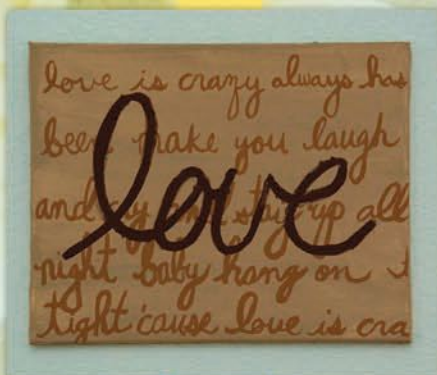 love is crazy always has
been make you laugh
love
and cry and stay up all
night baby hang on t
tight 'cause love is cra